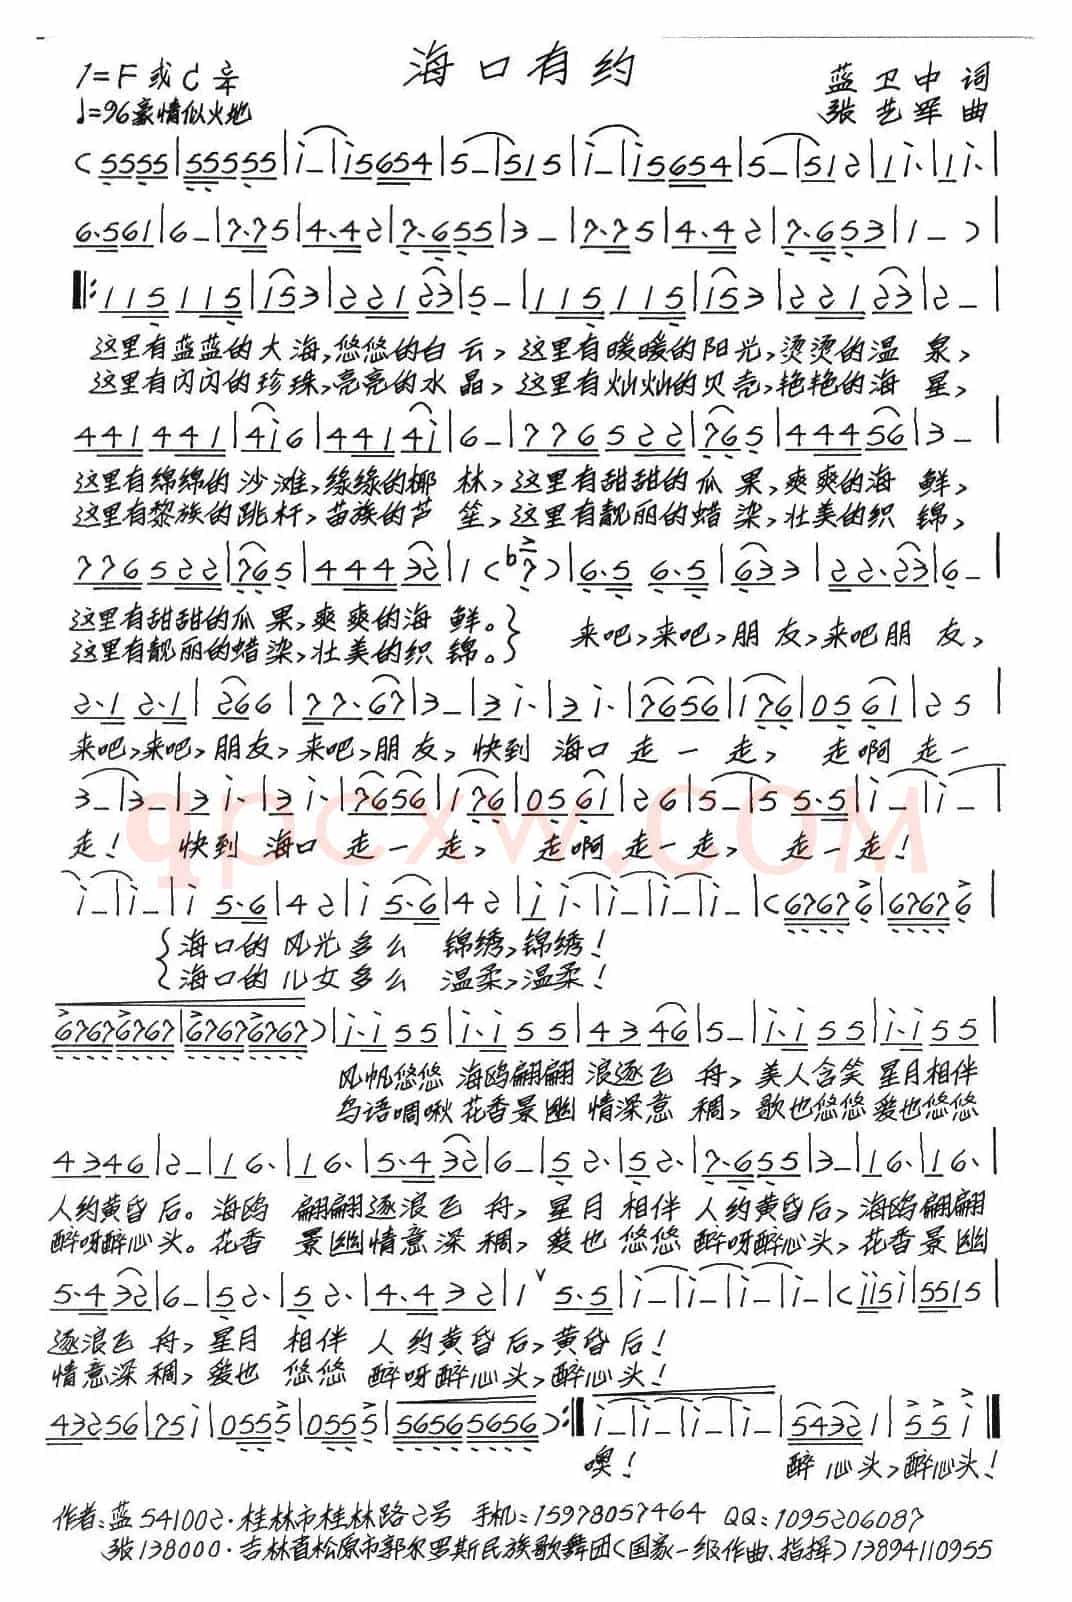 海口有约
1=F或C 2/4
蓝卫中 词
♩=96豪情似火地
张艺军 曲
(5555|55555|i–|i5654|5–|515|i–|i5654|5–|512|1i·|1i·|
6·561|6–|7·75|4·42|7·655|3–|7·75|4·42|7·653|1–)|
‖:115115|i53|22123|5–|115115|i53|22123|2–|
这里有蓝蓝的大海,悠悠的白云,这里有暖暖的阳光,烫烫的温泉,
这里有闪闪的珍珠,亮亮的水晶,这里有灿灿的贝壳,艳艳的海星,
441441|4i6|44141|6–|776522|765|44456|3–|
这里有绵绵的沙滩,缘缘的椰林,这里有甜甜的瓜果,爽爽的海鲜,
这里有黎族的跳杆,苗族的芦笙,这里有靓丽的蜡染,壮美的织锦,
776522|765|44432|1(b7)|6·5 6·5|633|22·23|6–|
这里有甜甜的瓜果,爽爽的海鲜。} 来吧,来吧,朋友,来吧朋友,
这里有靓丽的蜡染,壮美的织锦。}
2·1 2·1|266|77·67|3–|3i·|3i·|7656|176|0561|25|
来吧,来吧,朋友,来吧,朋友,快到海口走一走,走啊走一
3–|3–|3i· 3i·|7656|176|0561|26|5–|5 5·5|i–|i–|
走! 快到海口走一走, 走啊走一走, 走一走!
i–|i–|i 5·6|42|i 5·6|42|i i·|i–|i–|i–|(67676|67676|
{海口的风光多么 锦绣,锦绣!
{海口的儿女多么 温柔,温柔!
67676767|67676767)|i·i55|i·i55|4346|5–|i·i55|i·i55|
风帆悠悠 海鸥翩翩 浪逐飞舟,美人含笑 星月相伴
鸟语啁啾 花香景幽 情深意稠,歌也悠悠 爱也悠悠
4346|2–|16·|16·|5·432|6–|52·|52·|7·655|3–|16·|16·|
人约黄昏后。海鸥 翩翩逐浪飞舟,星月 相伴 人约黄昏后,海鸥翩翩
醉呀醉心头。花香 景幽情意深稠,爱也 悠悠 醉呀醉心头,花香景幽
5·432|6–|52·|52·|4·432|1ˇ5·5|i–|i–|i–|i–|(ii5i|5515|
逐浪飞舟,星月 相伴 人约黄昏后,黄昏后!
情意深稠,爱也 悠悠 醉呀醉心头,醉心头!
43256|75i|0555|0555|56565656):‖i–|i–|i–|i–|54321|55i‖
噢! 醉心头,醉心头!
作者:蓝541002·桂林市桂林路2号 手机:15978057464 QQ:1095206087
张138000·吉林省松原市郭尔罗斯民族歌舞团(国家一级作曲、指挥)13894110955
qpcxw.com